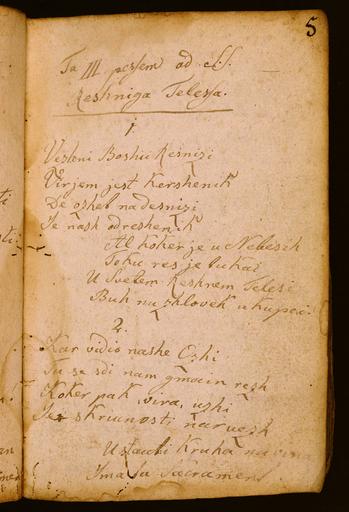 5
Ta III pesem od S. S.
Reshniga Telessa.
1
Vezhni Boshii Resnizi
Virjem jest Kershenik
De ozhel na desnizi
Je nash odreshenik
Al koker je u Nebesih
Toku res je tukai
U Svetem Reshnem Telesi
Buh nu zhlovek ukupei
2.
Kar vidio nashe Ozhi
Tu se sdi nam gmain rezh
Koker pak vira, uzhi
Je skrivnosti narvezh
Ustauti Kruha nu vina
Ima ta Sacrament